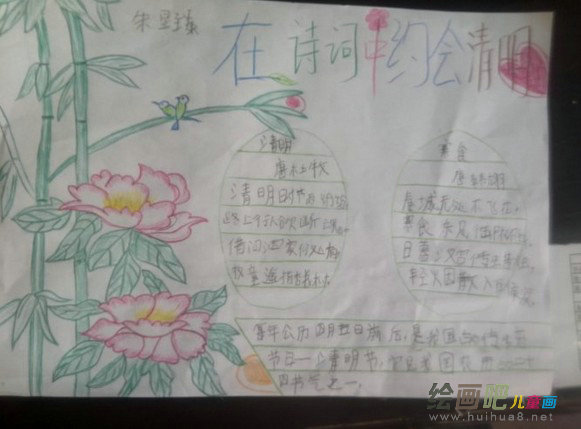 在诗词中约会清明
清明
唐杜牧
清明时节雨纷纷
路上行人欲断魂
借问酒家何处有
牧童遥指杏
寒食
唐 韩翃
春城无处不飞花
寒食东风
日暮汉宫传
轻烟散入五侯
每年公历四月五日前后,是我国的传统
节日——清明节,
四节气之一。
绘画吧儿童画
www.huihua8.net